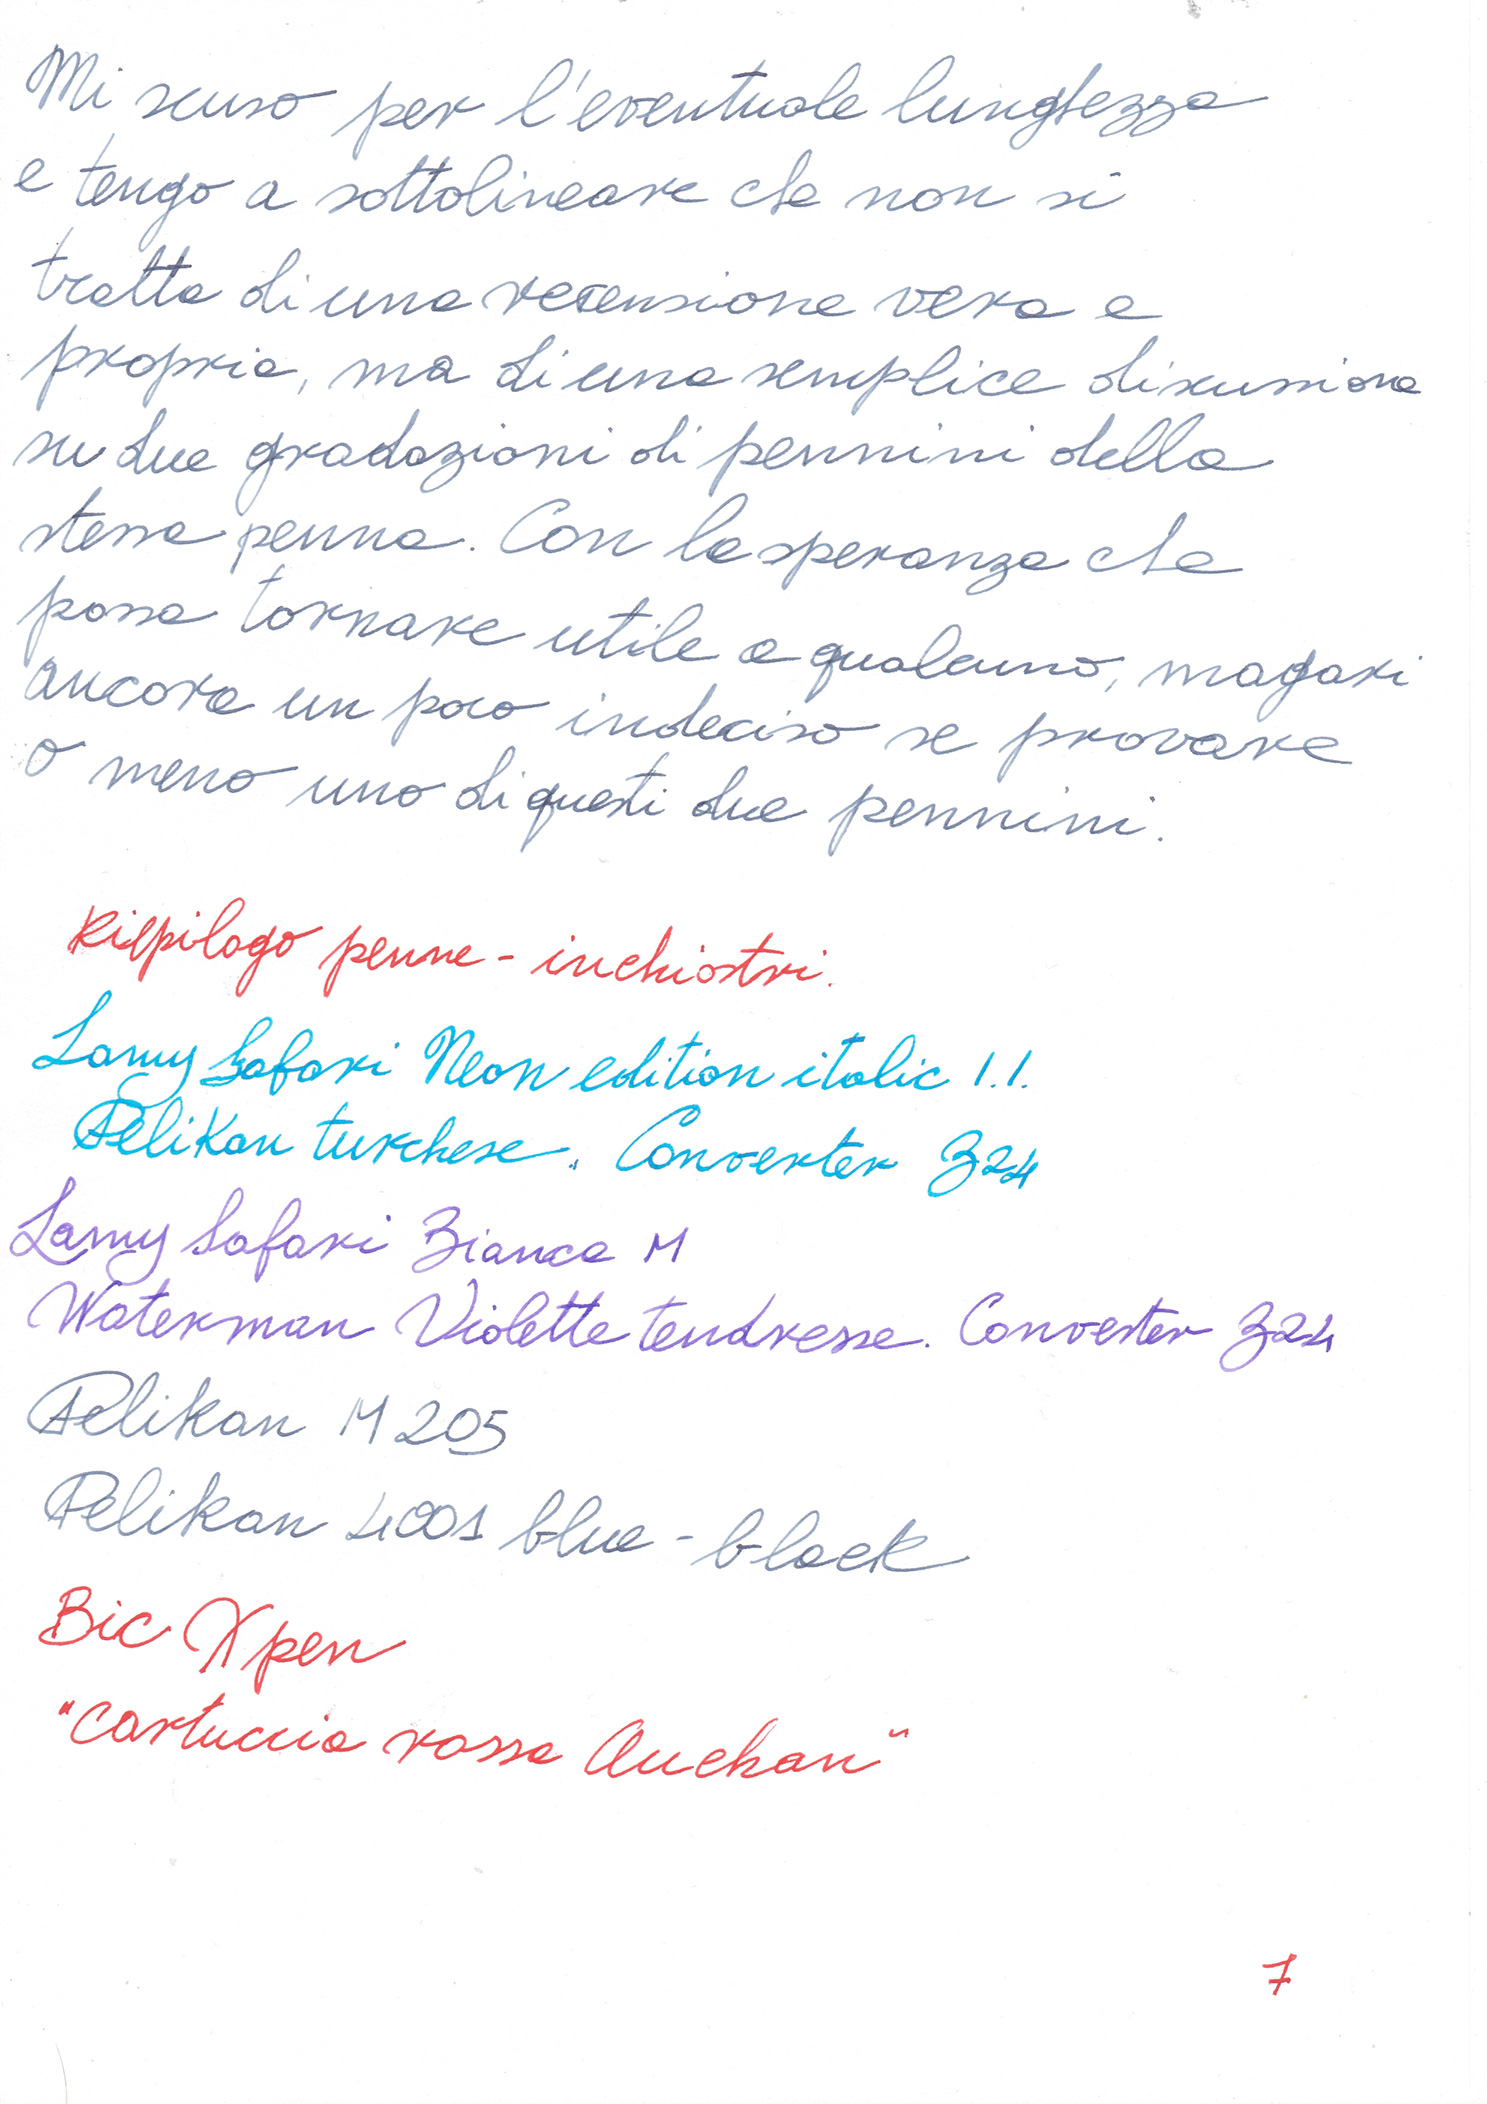 Mi scuso per l'eventuale lunghezza
e tengo a sottolineare che non si
tratta di una recensione vera e
propria, ma di una semplice discussione
su due gradazioni di pennini della
stessa penna. Con la speranza che
possa tornare utile a qualcuno, magari
ancora un poco indeciso se provare
o meno uno di questi due pennini.
Riepilogo penne - inchiostri.
Lamy Safari Neon edition italic 1.1.
Pelikan turchese. Converter Z24
Lamy Safari Bianca M
Waterman Violette tendresse. Converter Z24
Pelikan M205
Pelikan 4001 blue-black
Bic Xpen
"Cartuccia rossa Auchan"
7